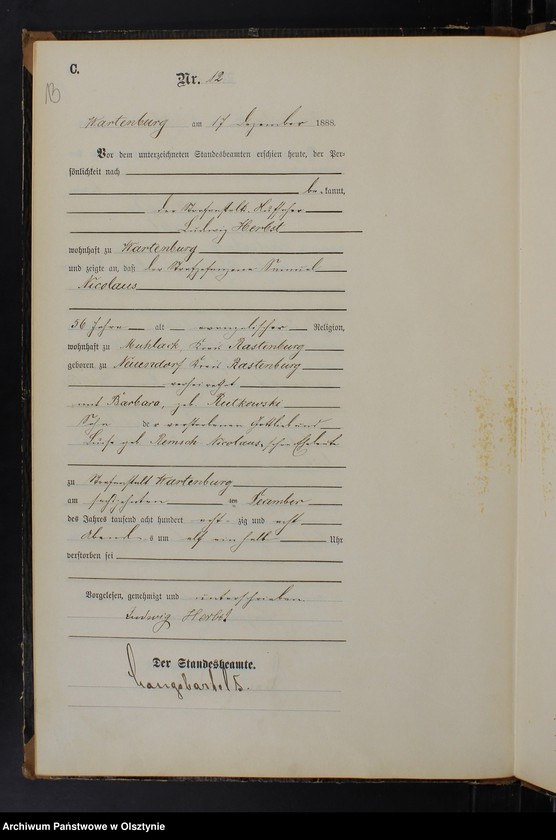 C.
Nr. 12
13
Wartenburg am 17 Dezember 1888.
Vor dem unterzeichneten Standesbeamten erschien heute, der Per-
sönlichkeit nach
be kannt,
der Strafanstalts Aufseher
Ludwig Herbst
wohnhaft zu Wartenburg
und zeigte an, daß der Strafgefangene Samuel
Nicolaus
56 Jahre alt evangelischer Religion,
wohnhaft zu Muhlack Kreis Rastenburg
geboren zu Neuendorf Kreis Rastenburg
verheirathet
mit Barbara, geb Rutkowski
Sohn der verstorbenen Gottlieb und
Luise geb Remsch Nicolaus schen Eheleute
zu Strafanstalt Wartenburg
am sechszehnten ten Dezember
des Jahres tausend acht hundert acht zig und acht
Abends um elf ein halb Uhr
verstorben sei
Vorgelesen, genehmigt und unterschrieben
Ludwig Herbst
Der Standesbeamte.
Langebartels.
Archiwum Państwowe w Olsztynie